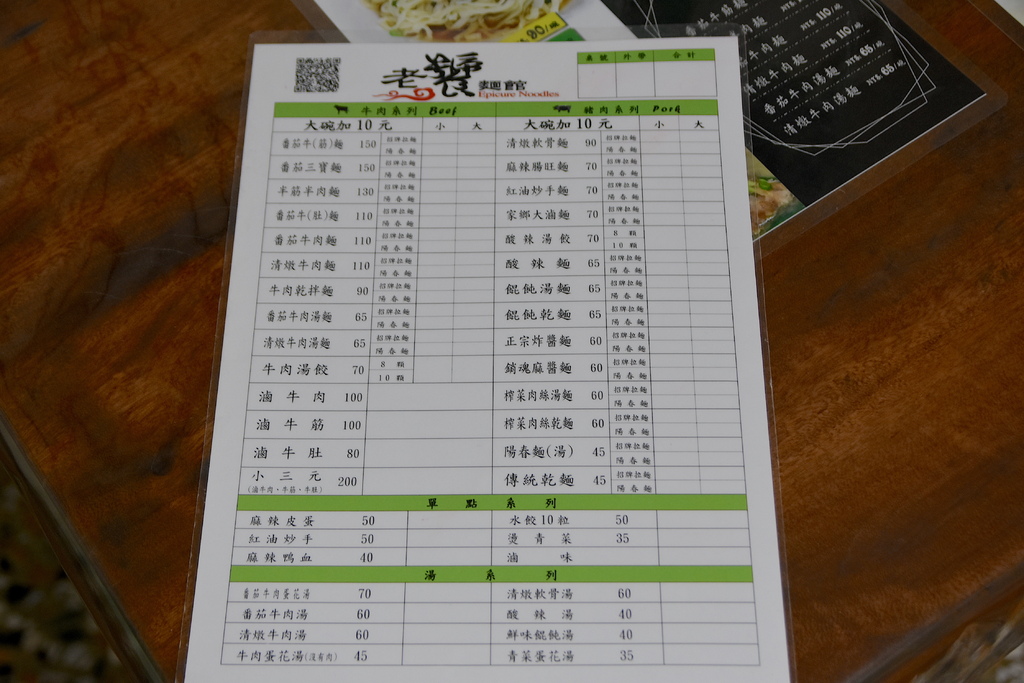 80/碗
番茄牛肉麵 NT$. 110/碗
清燉牛肉麵 NT$. 110/碗
番茄牛肉湯麵 NT$. 65/碗
清燉牛肉湯麵 NT$. 65/碗
老饕麵館
Epicure Noodles
桌號 外帶 合計
牛肉系列 Beef 豬肉系列 Pork
大碗加10元 小 大 大碗加10元 小 大
番茄牛(筋)麵 150 招牌拉麵 陽春麵 清燉軟骨麵 90 招牌拉麵 陽春麵
番茄三寶麵 150 招牌拉麵 陽春麵 麻辣腸旺麵 70 招牌拉麵 陽春麵
半筋半肉麵 130 招牌拉麵 陽春麵 紅油炒手麵 70 招牌拉麵 陽春麵
番茄牛(肚)麵 110 招牌拉麵 陽春麵 家鄉大滷麵 70 招牌拉麵 陽春麵
番茄牛肉麵 110 招牌拉麵 陽春麵 酸辣湯餃 70 8顆 10顆
清燉牛肉麵 110 招牌拉麵 陽春麵 酸辣麵 65 招牌拉麵 陽春麵
牛肉乾拌麵 90 招牌拉麵 陽春麵 餛飩湯麵 65 招牌拉麵 陽春麵
番茄牛肉湯麵 65 招牌拉麵 陽春麵 餛飩乾麵 65 招牌拉麵 陽春麵
清燉牛肉湯麵 65 招牌拉麵 陽春麵 正宗炸醬麵 60 招牌拉麵 陽春麵
牛肉湯餃 70 8顆 10顆 銷魂麻醬麵 60 招牌拉麵 陽春麵
滷牛肉 100 榨菜肉絲湯麵 60 招牌拉麵 陽春麵
滷牛筋 100 榨菜肉絲乾麵 60 招牌拉麵 陽春麵
滷牛肚 80 陽春麵(湯) 45 招牌拉麵 陽春麵
小三元 200 傳統乾麵 45 招牌拉麵 陽春麵
(滷牛肉、牛筋、牛肚)
單點系列
麻辣皮蛋 50 水餃10粒 50
紅油炒手 50 燙青菜 35
麻辣鴨血 40 滷味
湯系列
番茄牛肉蛋花湯 70 清燉軟骨湯 60
番茄牛肉湯 60 酸辣湯 40
清燉牛肉湯 60 鮮味餛飩湯 40
牛肉蛋花湯(沒有肉) 45 青菜蛋花湯 35